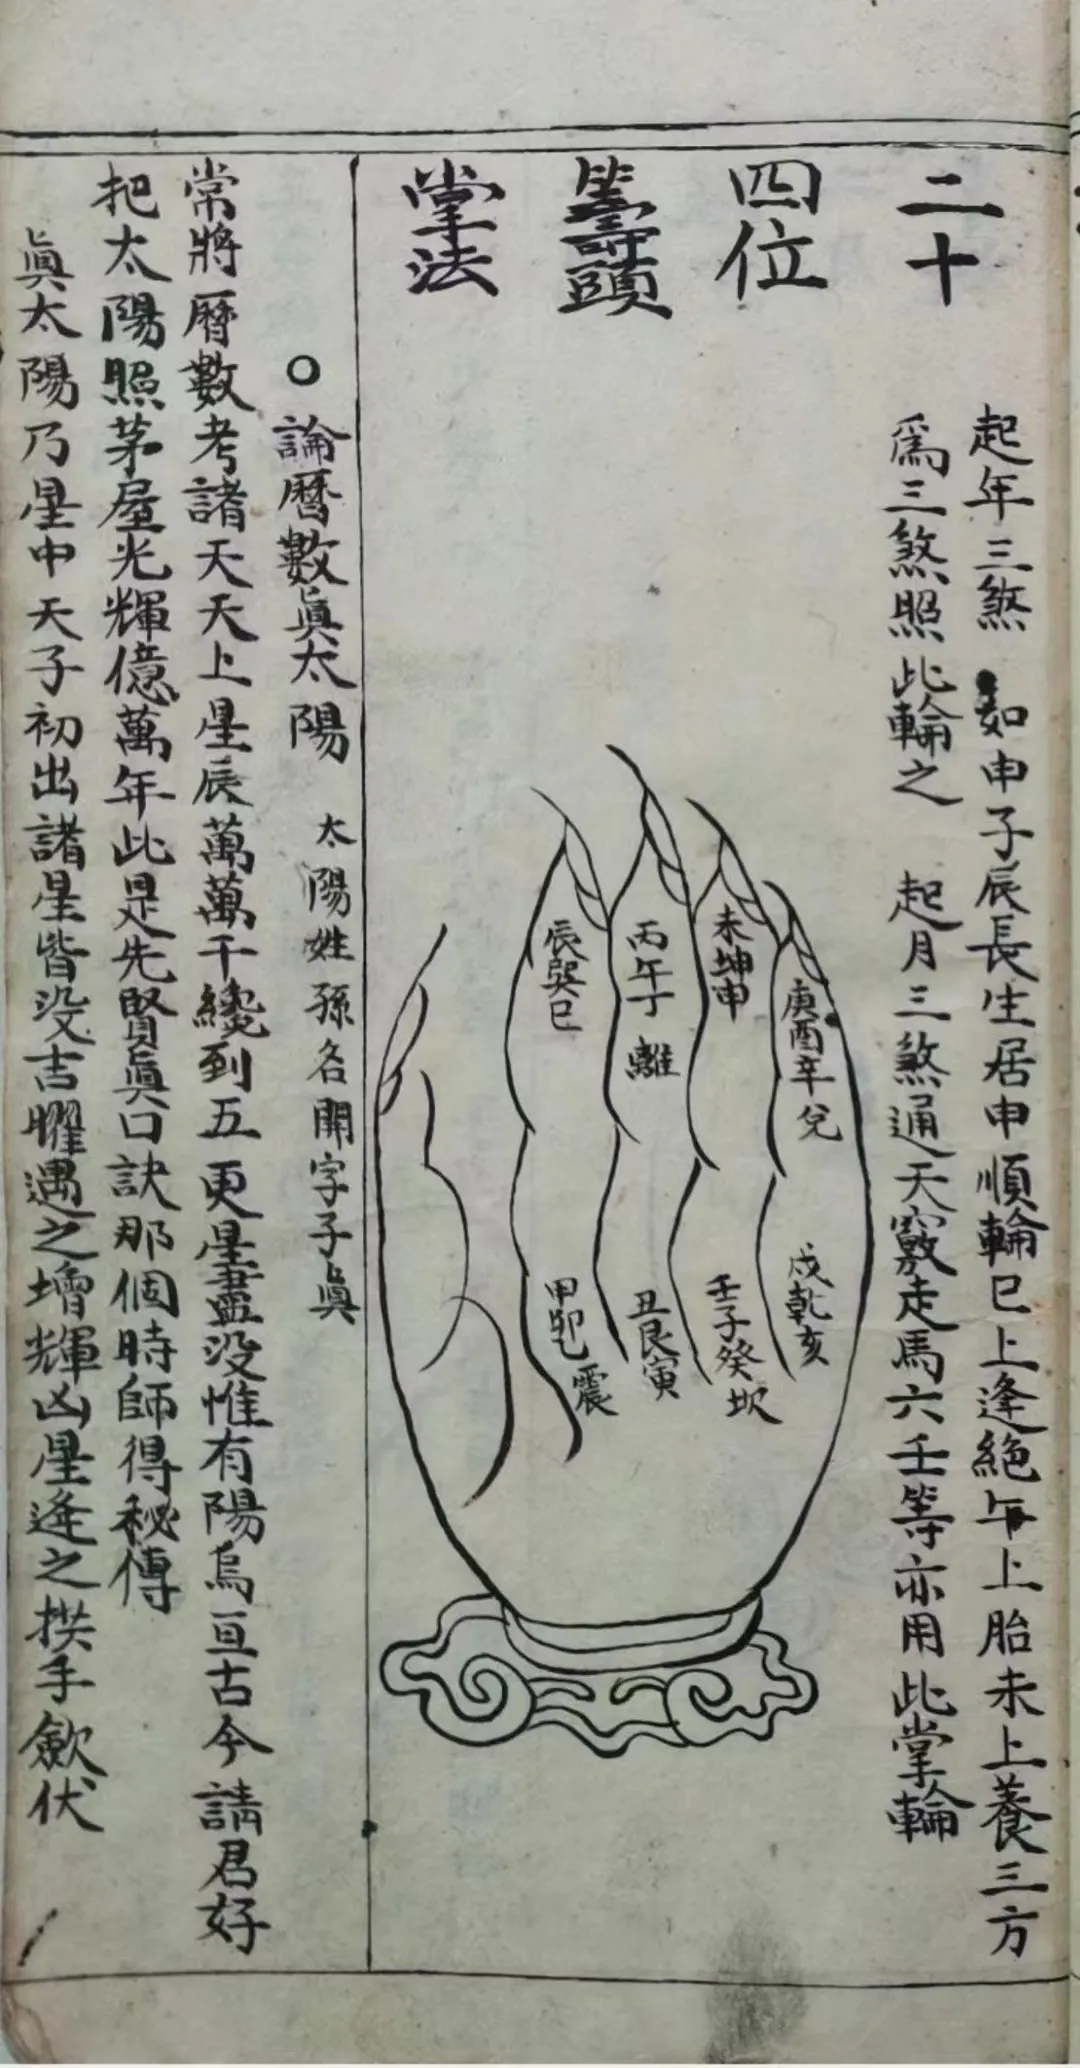 二十
四位
籌頭
掌法
起年三煞 如申子辰長生居申順輪巳上逢絕午上胎未上養三方
爲三煞照此輪之 起月三煞通天竅走馬六壬等亦用此掌輪
庚酉辛兌
未坤申
丙午丁離
辰巽巳
戌乾亥
壬子癸坎
丑艮寅
甲卯乙震
○論曆數眞太陽 太陽姓孫名開字子眞
常將曆數考諸天天上星辰萬萬千纔到五更星盡没惟有陽烏亘古今請君好
把太陽照茅屋光輝億萬年此是先賢眞口訣那個時師得秘傳
眞太陽乃星中天子初出諸星皆没吉曜遇之增輝凶星逢之拱手歛伏